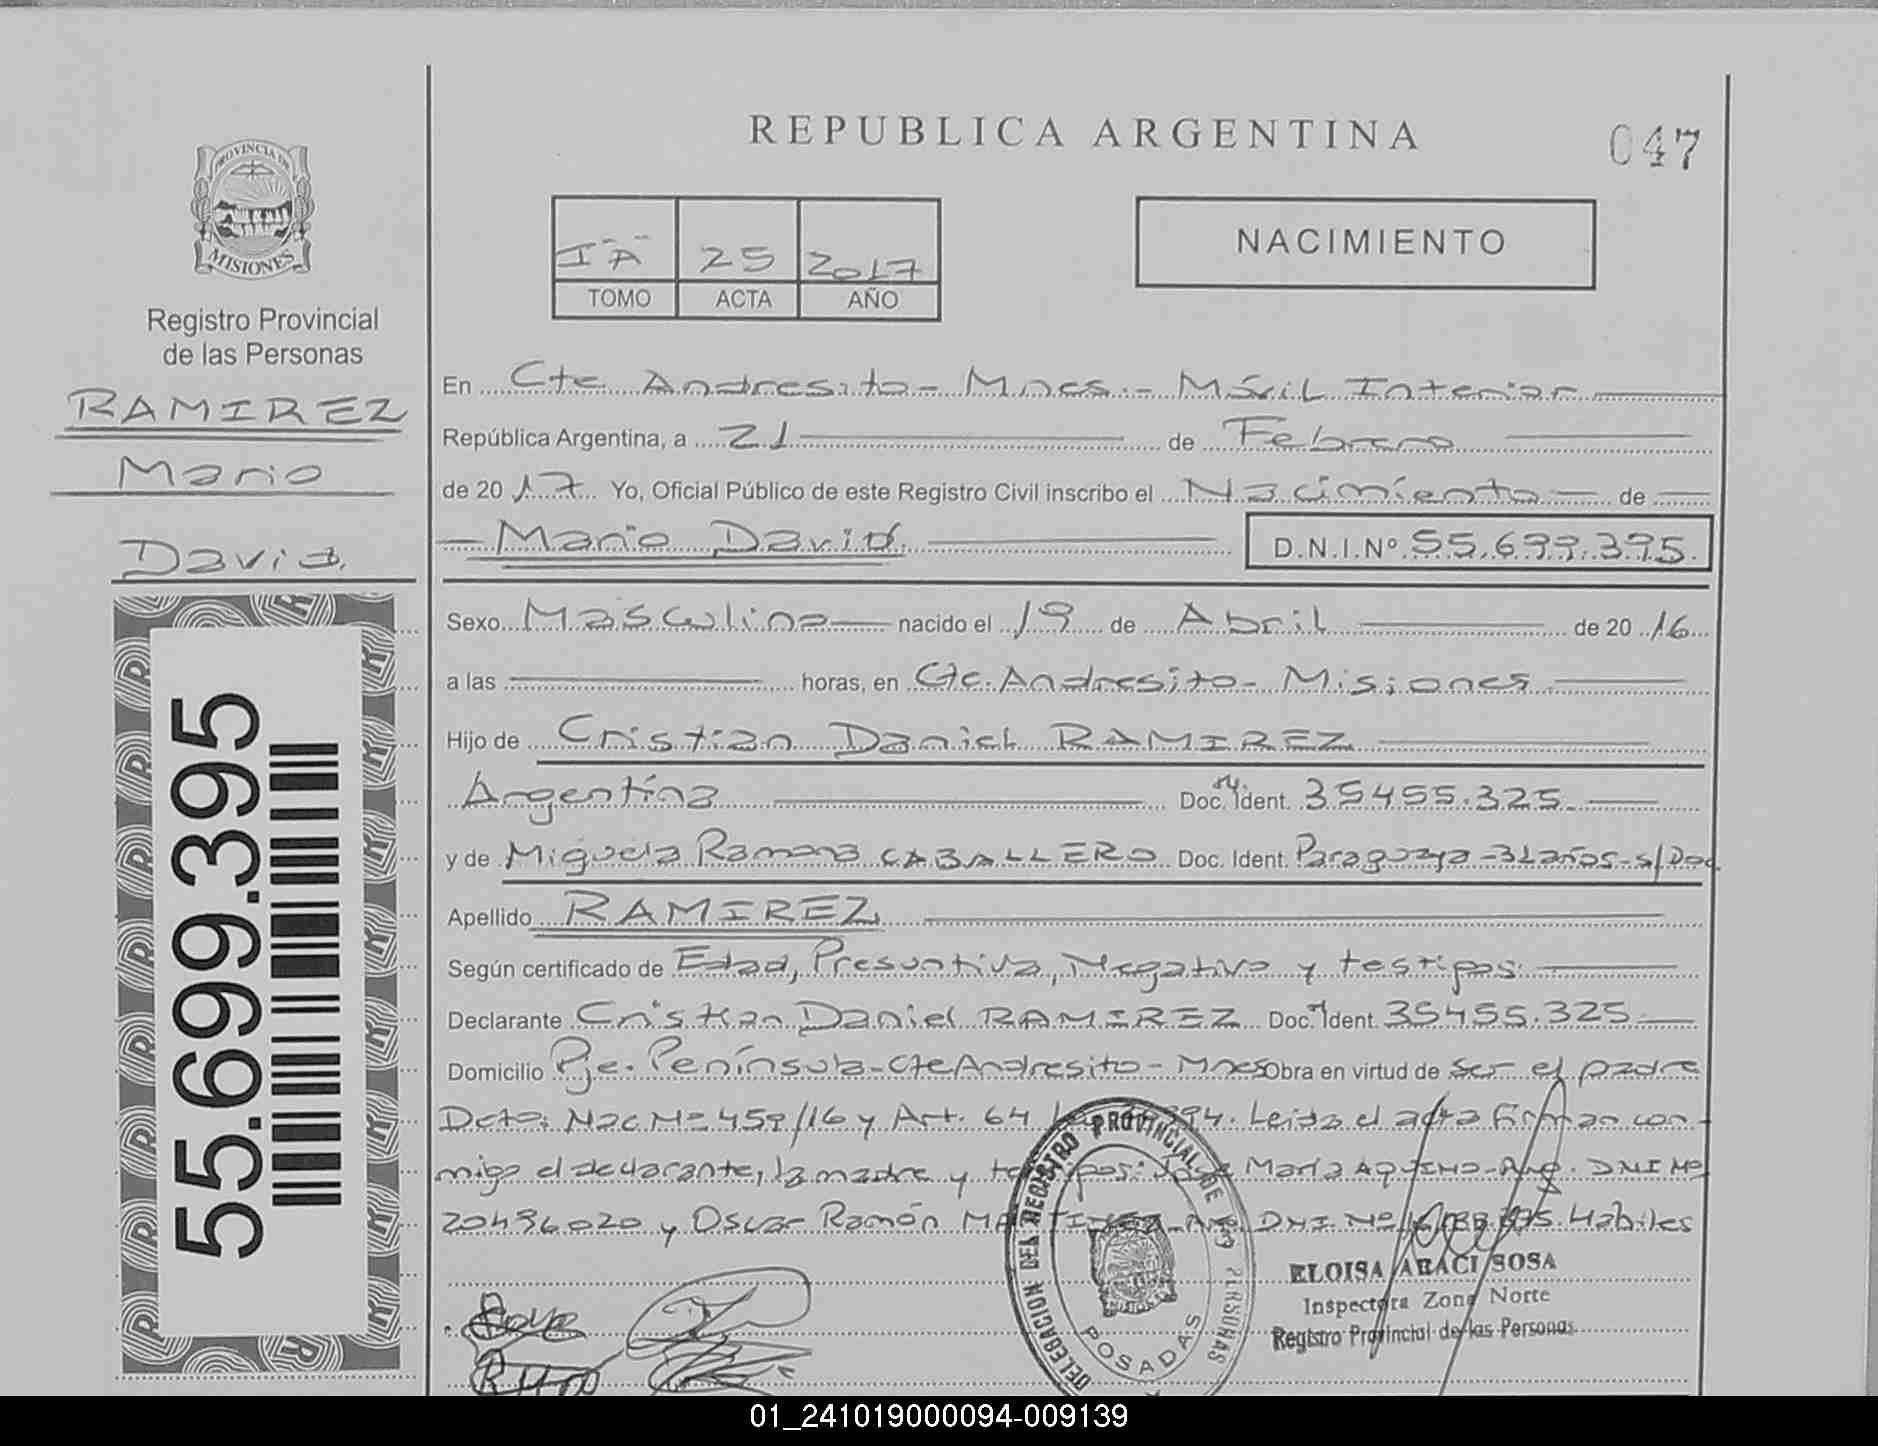 REPUBLICA ARGENTINA
047
PROVINCIA DE
MISIONES
Registro Provincial
de las Personas
RAMIREZ
Mario
David.
55.699.395
I"A" 25 2017
TOMO ACTA AÑO
NACIMIENTO
En Cte Andresito - Mnes. - Móvil Interior
República Argentina, a 21 de Febrero
de 2017 Yo, Oficial Público de este Registro Civil inscribo el Nacimiento de
Mario David. D.N.I.Nº 55.699.395.
Sexo Masculino nacido el 19 de Abril de 2016
a las horas, en Cte. Andresito - Misiones
Hijo de Cristian Daniel RAMIREZ
Argentina Doc. Ident. 35455.325.
y de Miguela Ramona CABALLERO Doc. Ident. Paraguaya - 31 años - s/Doc
Apellido RAMIREZ
Según certificado de Edad, Presuntiva, Negativo y testigos.
Declarante Cristian Daniel RAMIREZ Doc. Ident. 35455.325.
Domicilio Pje. Península - Cte Andresito - Mnes Obra en virtud de ser el padre
Dcto: Nac Nº 459/16 y Art. 64 Leida el acta firman con-
migo el declarante, la madre y María AQUINO - Arg. DNI Nº
20496020 y Oscar Ramón DNI. Nº Habiles
DELEGACION DEL REGISTRO PROVINCIAL DE LAS PERSONAS
POSADAS
ELOISA ARACI SOSA
Inspectora Zona Norte
Registro Provincial de las Personas
01_241019000094-009139